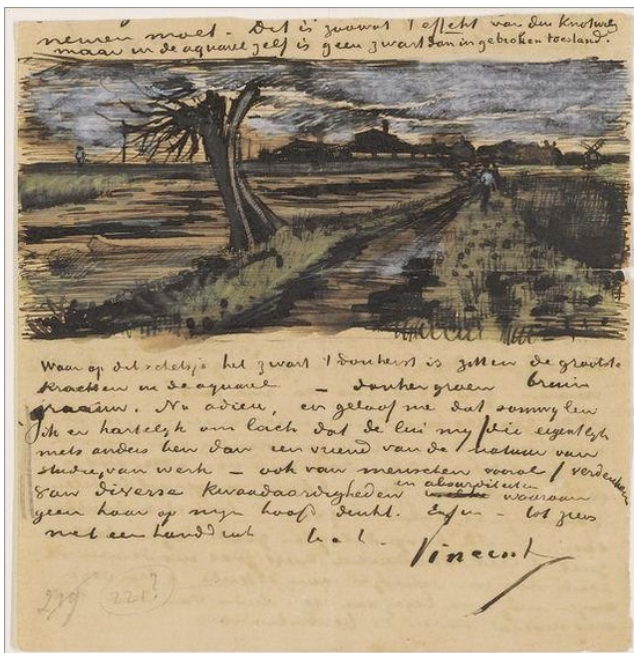 nemen moet. – Dit is zoowat 't effekt van den Knotwilg
maar in de aquarel zelf is geen zwart dan in gebroken toestand.
Waar op dit schetsje het zwart 't donkerst is zitten de grootste
krachten in de aquarel – donkergroen bruin
graauw. Nu adieu, en geloof me dat sommijlen
ik er hartelijk om lach dat de lui mij / die eigentlyk
niets anders ben dan een vriend van de natuur van
studie, van werk – ook van menschen vooral / verdenken
van diverse kwaadaardigheden en absurditeiten waaraan
geen haar op mijn hoofd denkt. Enfin – tot ziens
met een handdruk t. à t.
Vincent
239 221?